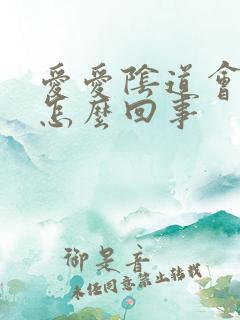 愛愛陰道會
怎麼回事
御是音
未任同意禁止轉載